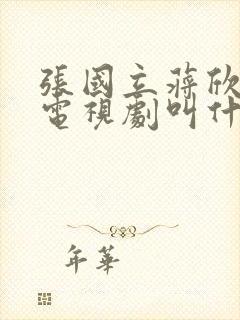 張國立蔣欣
電視劇叫什
年華